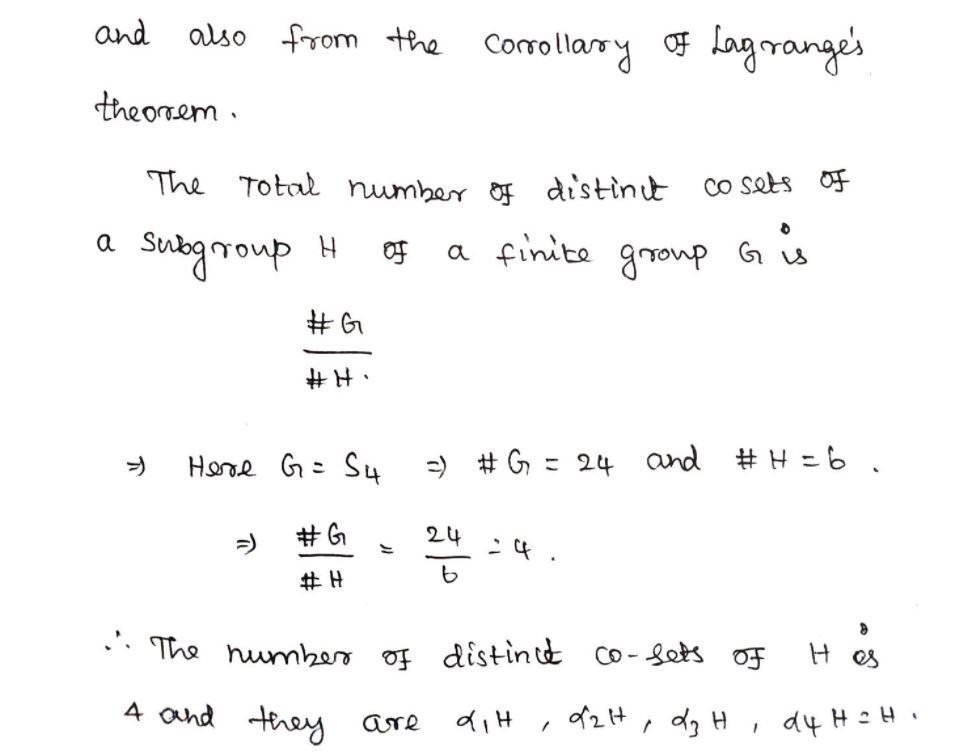 and also from the corollary of Lagrange's
theorem.
The Total number of distinct cosets of
a subgroup H of a finite group G is
# G
# H.
⇒ Here G = S4 ⇒ # G = 24 and # H = 6.
⇒ # G / # H = 24 / 6 = 4.
∴ The number of distinct co-sets of H is
4 and they are α1H, α2H, α3H, α4H = H.